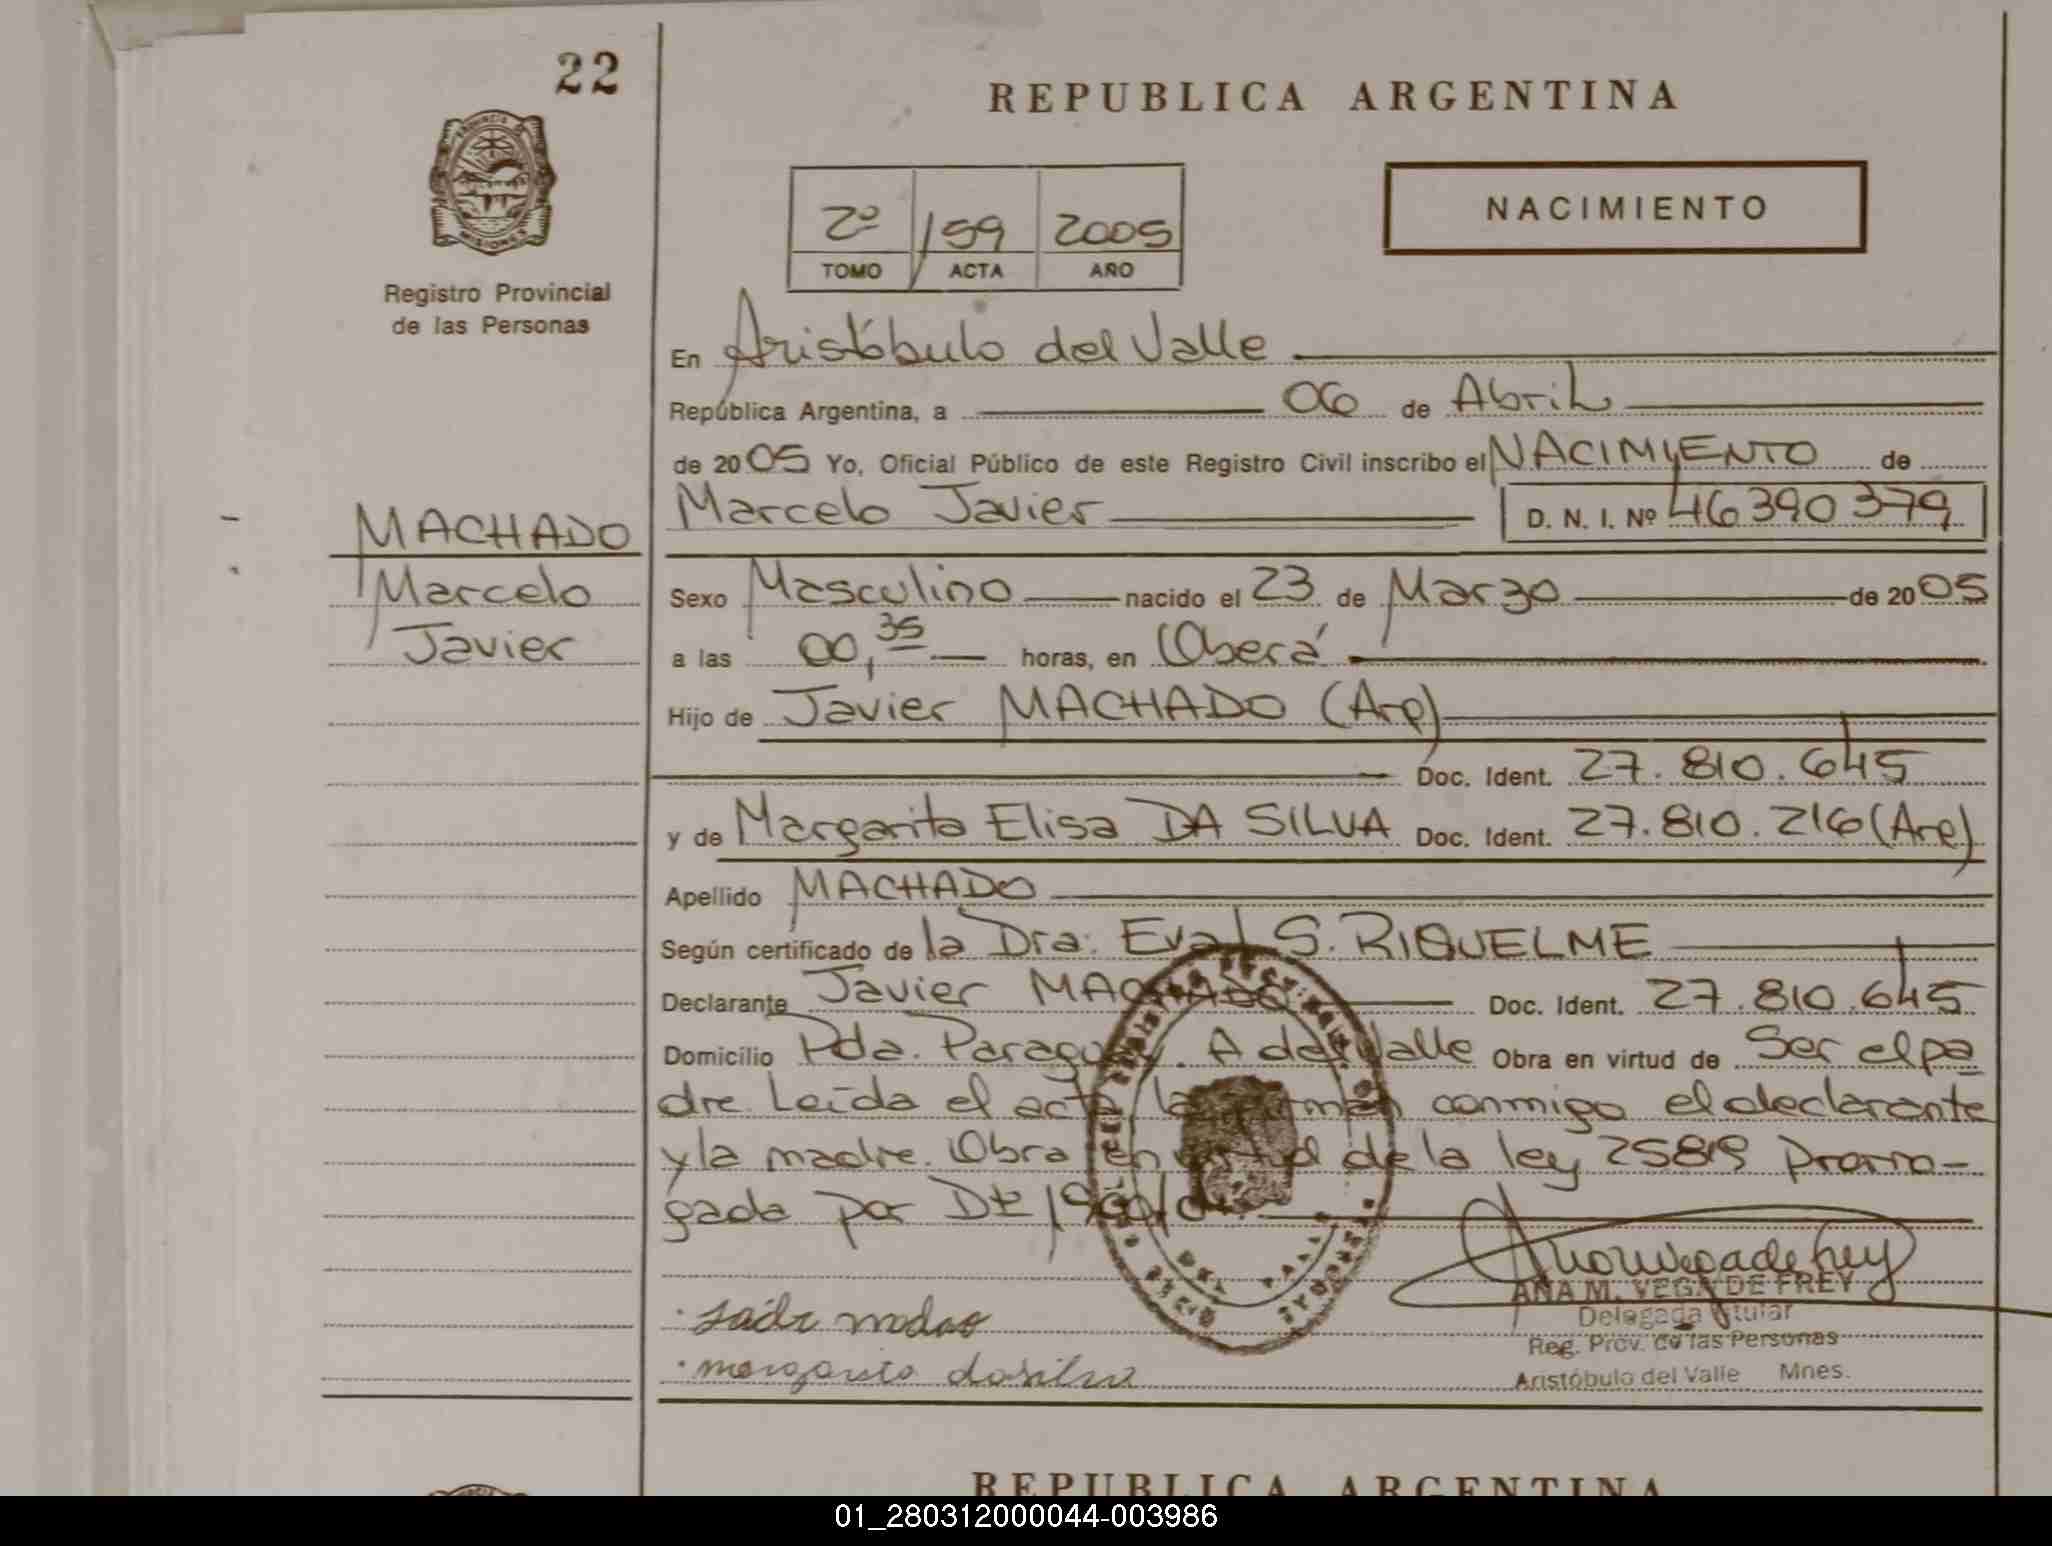 22
REPUBLICA ARGENTINA
PROVINCIA
MISIONES
Registro Provincial
de las Personas
2º 159 2005
TOMO ACTA AÑO
NACIMIENTO
En Aristóbulo del Valle
República Argentina, a 06 de Abril
de 2005 Yo, Oficial Público de este Registro Civil inscribo el NACIMIENTO de
Marcelo Javier D. N. I. Nº 46390379
MACHADO
Marcelo
Javier
Sexo Masculino nacido el 23 de Marzo de 2005
a las 00,35 horas, en Oberá
Hijo de Javier MACHADO (Arg)
Doc. Ident. 27.810.645
y de Margarita Elisa DA SILVA Doc. Ident. 27.810.216 (Arg)
Apellido MACHADO
Según certificado de la Dra: Eva S. RIQUELME
Declarante Javier MACHADO Doc. Ident. 27.810.645
Domicilio Pda. Paraguay. A del Valle Obra en virtud de Ser el pa
dre. Leída el acta, la firman conmigo el declarante
y la madre. Obra en virtud de la ley 25819 Prorro-
gada por
ANA M. VEGA DE FREY
Delegada Titular
Reg. Prov. de las Personas
Aristóbulo del Valle Mnes.
margarita dasilva
REPUBLICA ARGENTINA
01_280312000044-003986